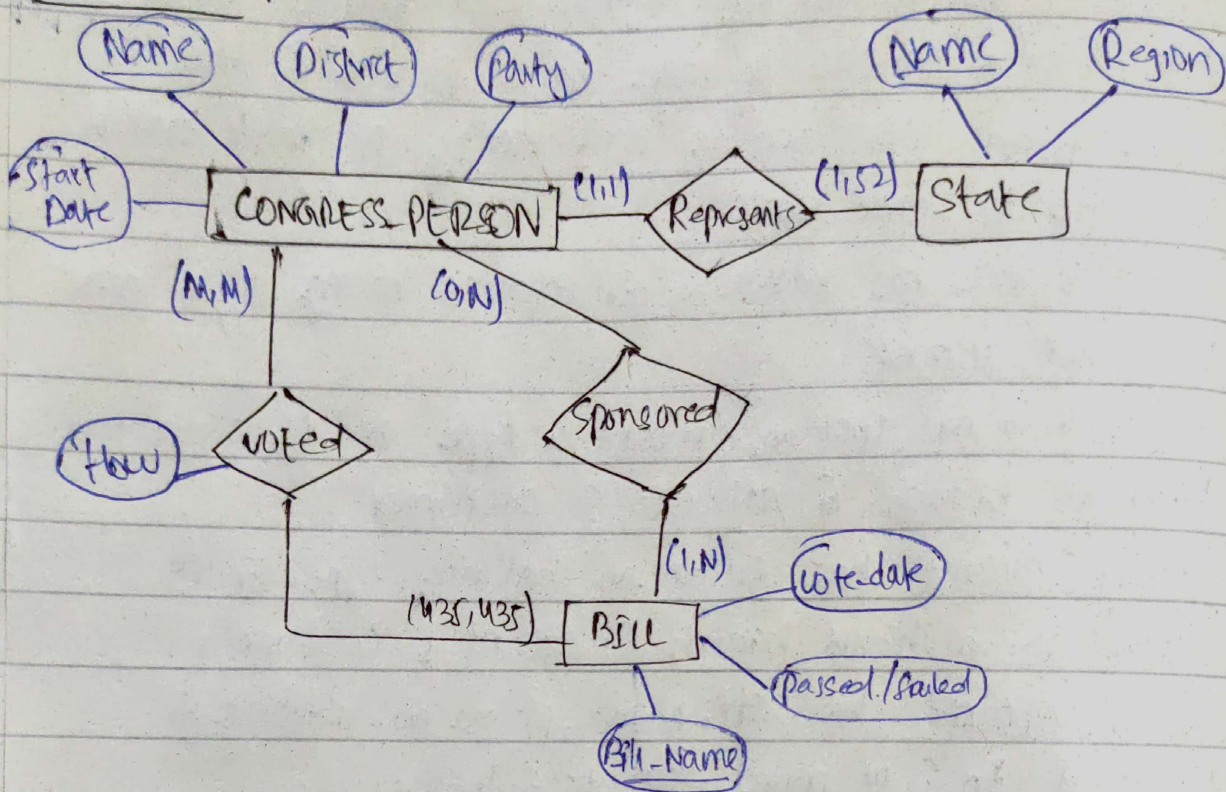 Name
District
Party
Name
Region
Start
Date
CONGRESS_PERSON
(1,1)
Represents
(1,52)
State
(M,M)
(0,N)
How
voted
Sponsored
(1,N)
vote-date
(435,435)
BILL
passed/failed
Bill-Name